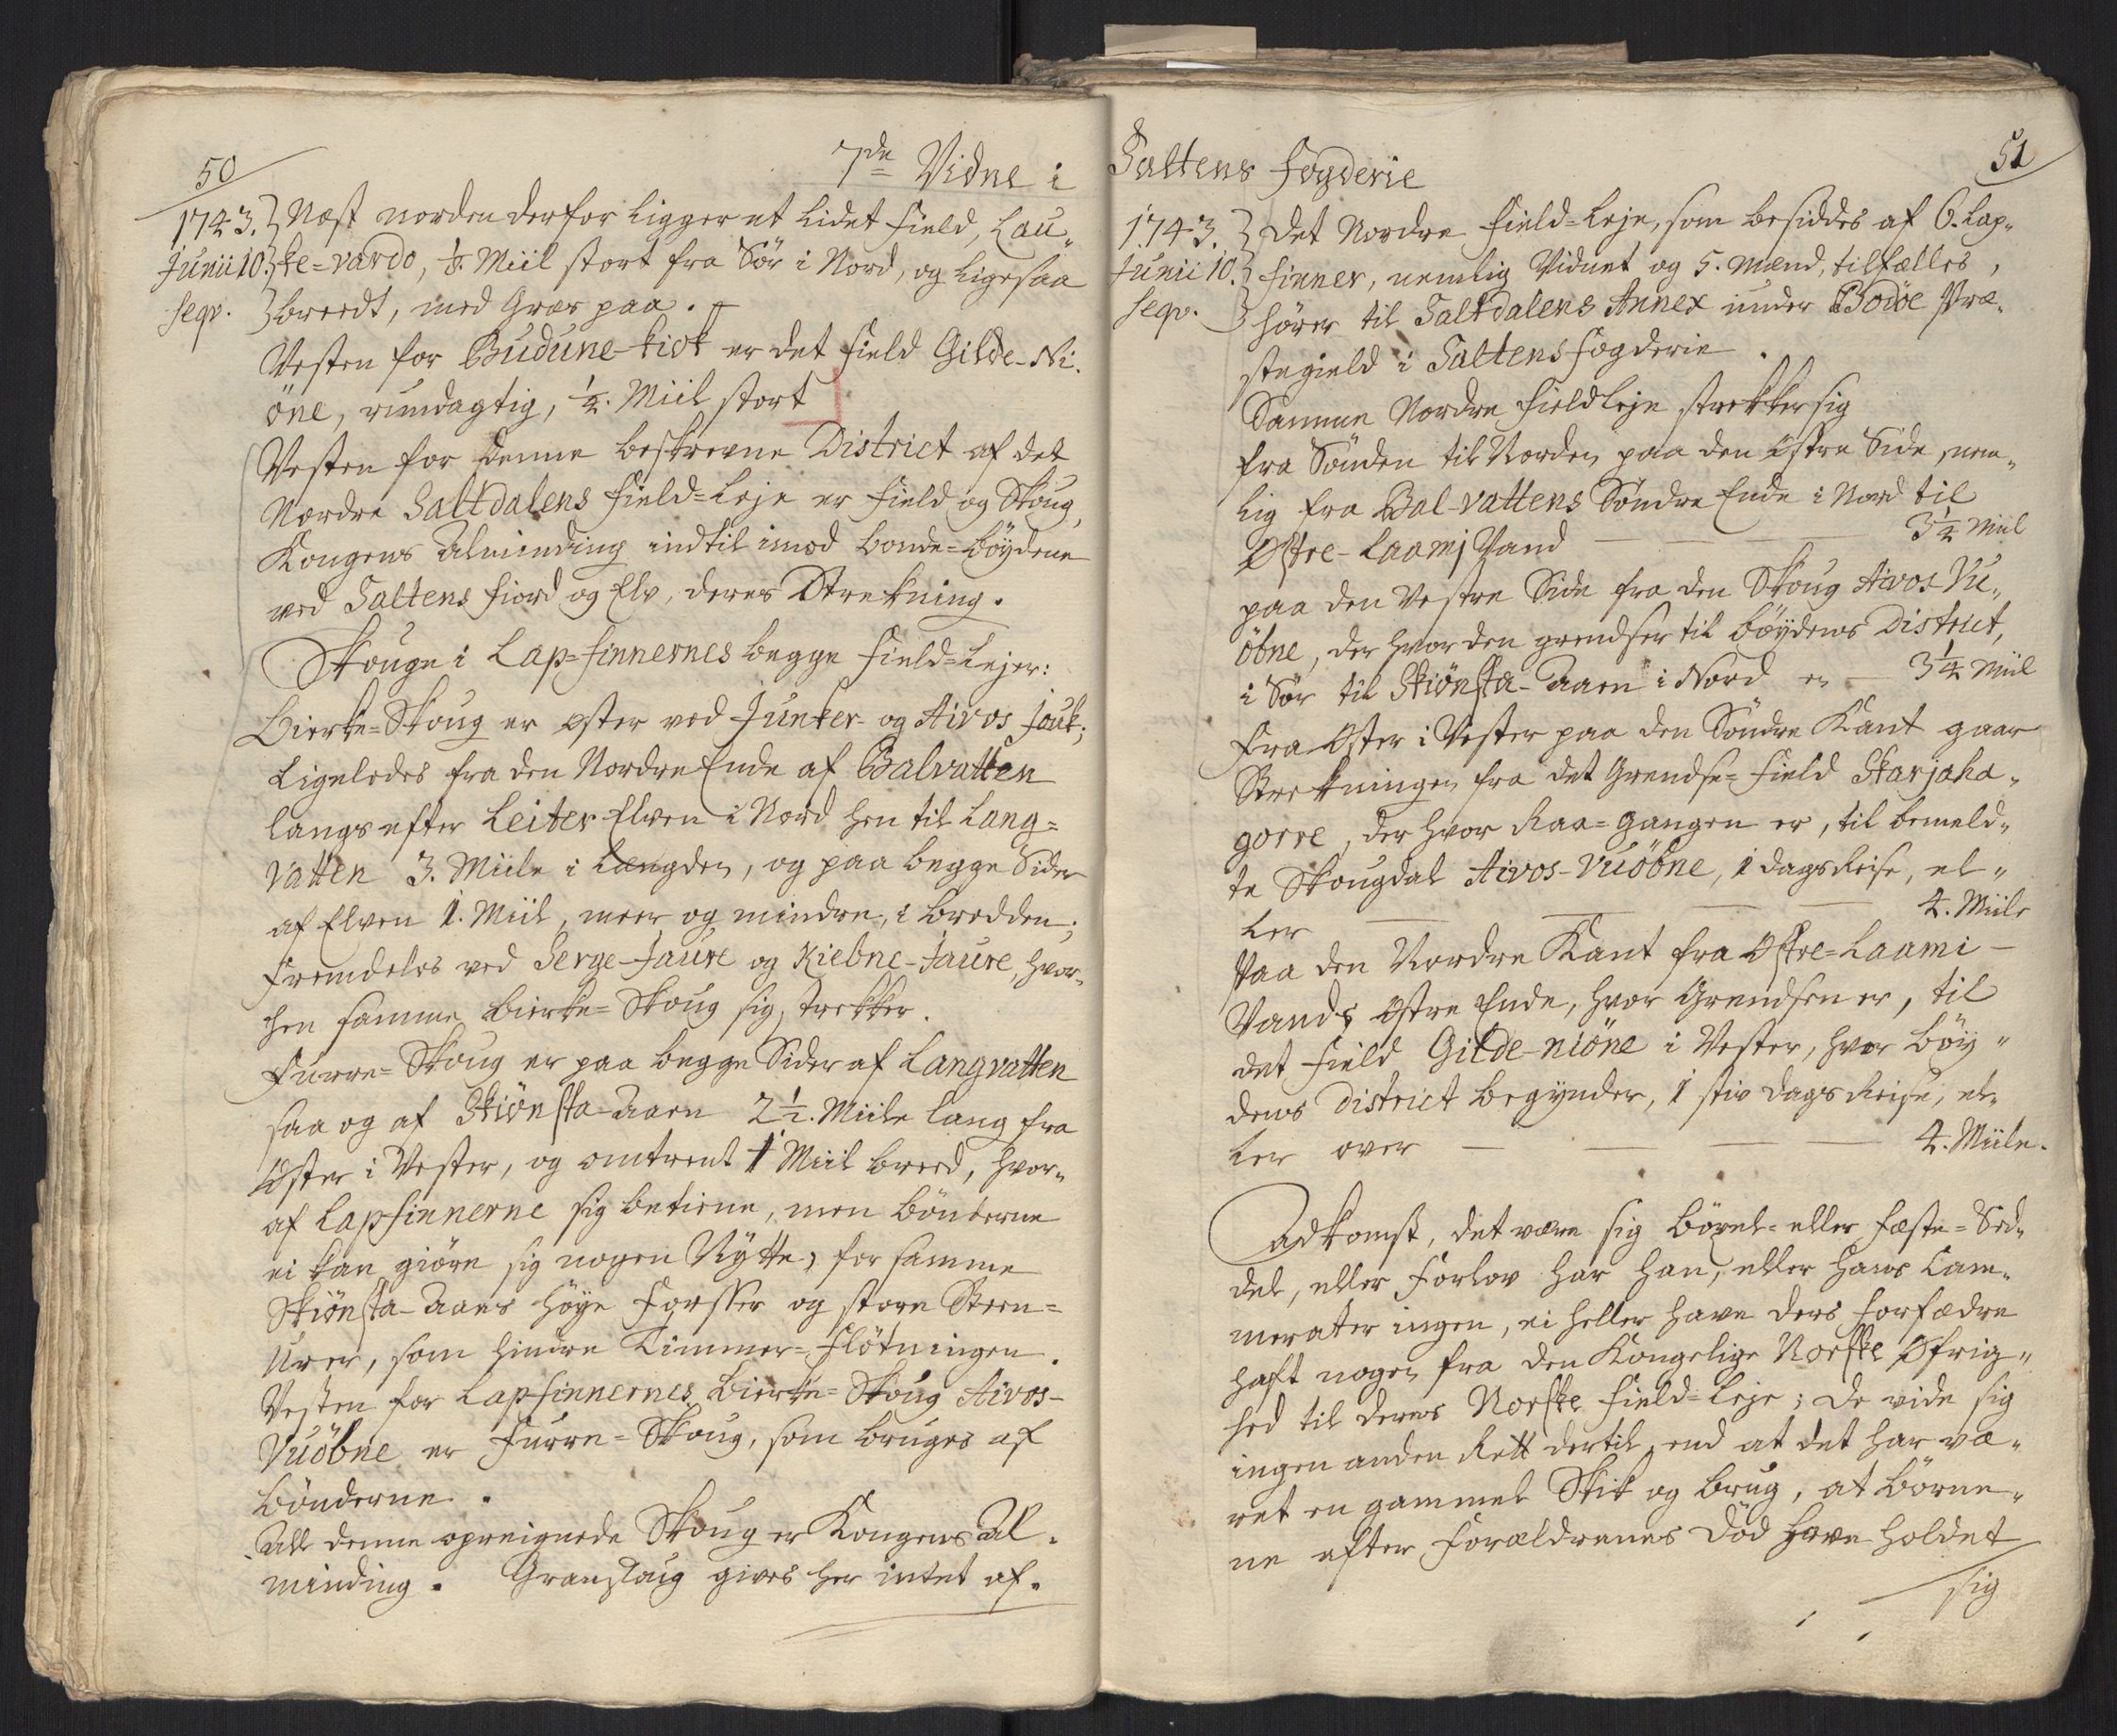 50
7de Vidne i
1743. } Næst norden derfor ligger et lidet Field, Lau„
Junii 10. } ke=vardo, 1/8. Miil stort fra Sør i Nord, og ligesaa
seqv. } breedt, med Græs paa.
Vesten for Budune-kiok er det Field Gilde-Ni„
öne, rundagtig, 1/2. Miil stort
Vesten for denne beskrevne District af det
Nordre Saltdalens Field=Leje er Field og Skoug,
Kongens Alminding indtil imod Bonde=böydene
ved Saltens Fiord og Elv, deres Strekning.
Skouge i Lap=finnernes begge Field=Lejer:
Bierke=Skoug er Øster ved Junker- og Aivos jouk;
Ligeledes fra den Nordre Ende af Balvatten
langs efter Leiter Elven i Nord hen til Lang=
vatten 3. Miile i Længden, og paa begge Sider
af Elven 1. Miil, meer og mindre, i bredden;
Fremdeles ved Serge-Jaure og Kiebne-Jaure, hvor„
hen samme Bierke=Skoug sig strekker.
Furre=Skoug er paa begge Sider af Langvatten
saa og af Skiönsta-Aaen 2 1/2. Miile lang fra
Øster i Vester, og omtrent 1 Miil breed, hvor„
af Lapfinnerne sig betiene, men Bönderne
ei kan giöre sig nogen Nytte, for samme
Skiönsta-Aaes höye Forsser og store Steen=
Urer, som hindre Timmer=Flötningen.
Vesten for Lapfinnernes Bierke=Skoug Aivos-
Vuöbne er Furre=Skoug, som bruges af
Bönderne.
All denne opreignede Skoug er Kongens Al„
minding. Granskoug gives her intet af.
Saltens Fogderie
51
1743. } Det Nordre Field=Leje, som besiddes af 6. Lap„
Junii 10. } finner, nemlig Vidnet og 5. Mænd, tilfælles,
seqv. } hörer til Saltdalens Annex under Bodöe Præ„
stegield i Saltens Fogderie.
Samme Nordre Fieldleje strekker sig
fra Sönden til Norden paa den Østre Side, nem„
lig fra Bal-vattens Söndre Ende i Nord til
Østre-Laamj Vand — — 3 1/2 Miil
paa den Vestre Side fra den Skoug Aivos-Vu„
öbne, der hvor den grendser til böydens District,
i Sör til Skiönsta-Aaen i Nord er — 3 1/4 Miil
Fra Øster i Vester paa den Söndre Kant gaar
Strekningen fra det Grendse=Field Skarjaha„
gorre, der hvor Raa=Gangen er, til bemeld„
te Skougdal Aivos-Vuöbne, 1 dags Reise, el„
ler — — — — 4. Miile
Paa den Nordre Kant fra Østre=Laami-
Vands Østre Ende, hvor Grendsen er, til
det Field Gilde-niöne i Vester, hvor böy„
dens District begynder, 1 stiv dags Reise, el„
ler over — — — 4. Miile.
Adkomst, det være sig böxel= eller Fæste=Sed„
del, eller Forlov har han, eller hans Cam„
merater ingen, ei heller have ders Forfædre
haft nogen fra den Kongelige Norske Øfrig„
hed til deres Norske Field=Leje; De vide sig
ingen anden Rett dertil, end at det har væ„
ret en gammel Skik og brug, at Börne„
ne efter Forældrenes Död have holdet
sig